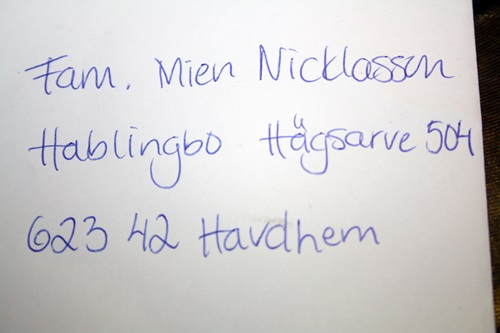 Fam. Mien Nicklasson
Hablingbo Hägsarve 504
623 42 Havdhem